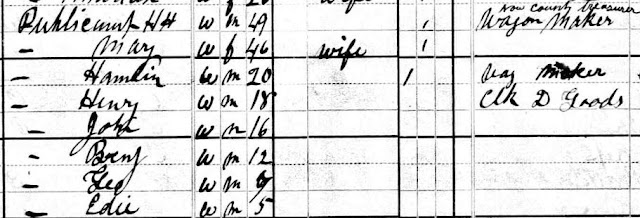 now county treasurer
Publicump HH W m 49 1 Wagon Maker
— Mary W f 46 wife 1
— Hamlin W m 20 1 Wag maker
— Henry W m 18 Clk D Goods
— John W m 16
— Benj W m 12
— Geo W m
— Edie W m 5